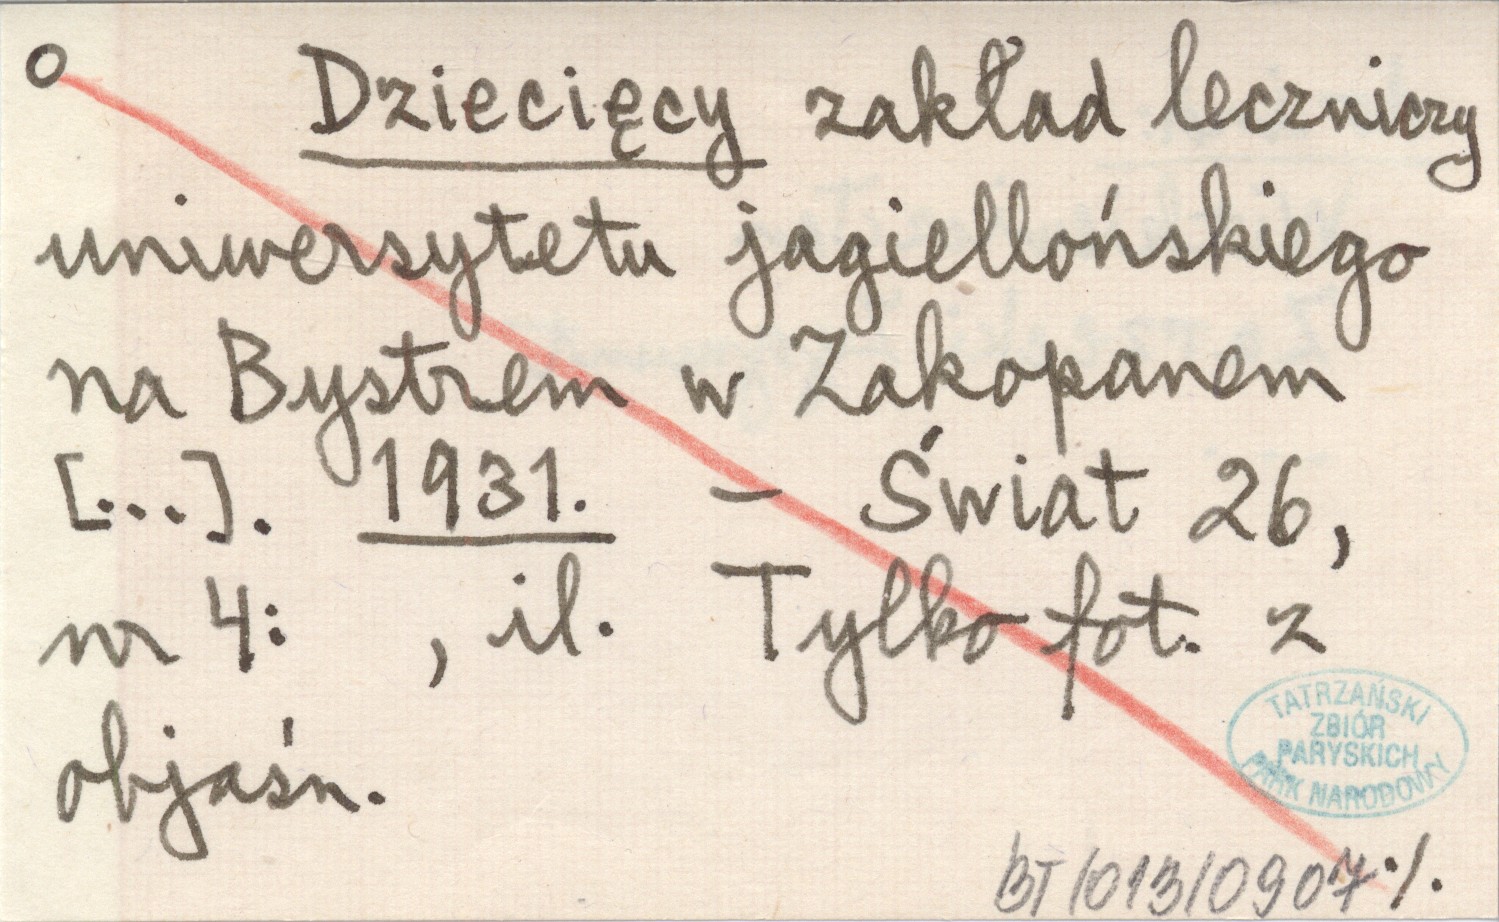 o Dziecięcy zakład leczniczy
uniwersytetu jagiellońskiego
na Bystrem w Zakopanem
[...]. 1931. – Świat 26,
nr 4: , il. Tylko fot. z
objaśn.
TATRZAŃSKI
ZBIÓR
PARYSKICH
PARK NARODOWY
BT/013/0907 ./.